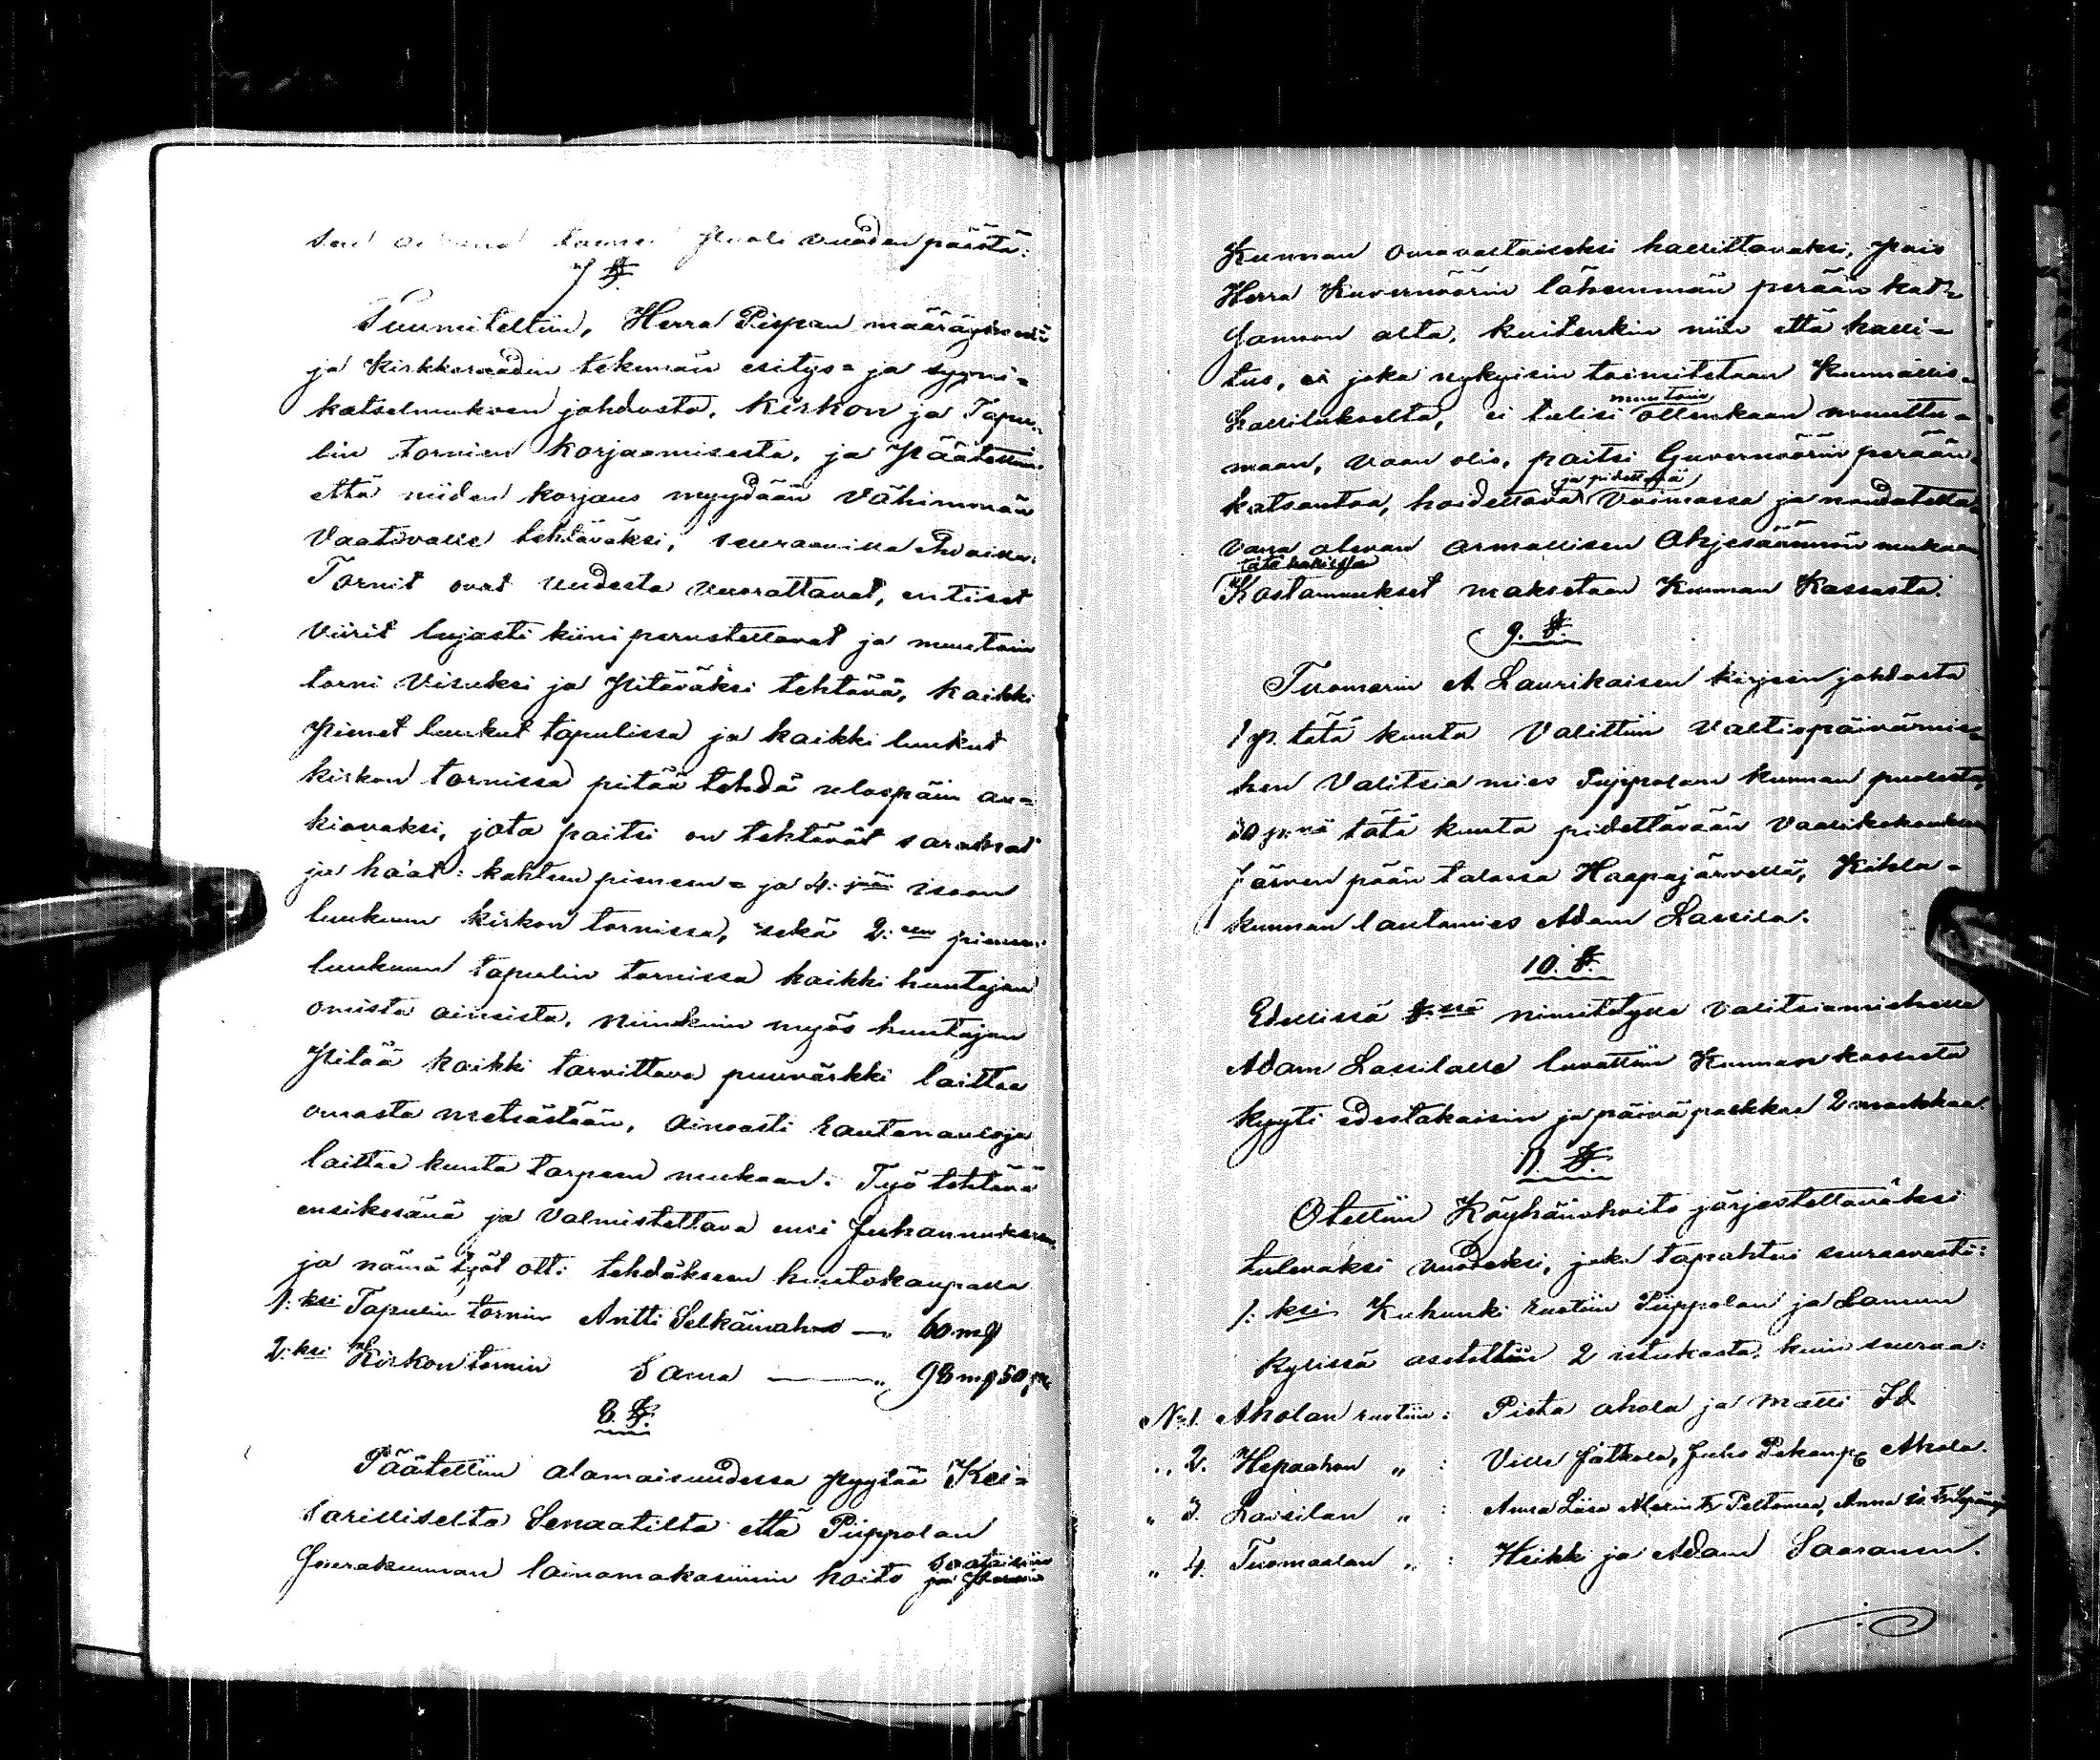 puoli vuoden päästä:
7 §.
Tuumiteltiin, Herra Piispan määräyksestä
ja Kirkkoraadin tekemän esitys= ja syyni=
katselmuksen johdosta, Kirkon ja Tapu=
lin tornien korjaamisesta, ja Päätettiin
että niiden korjaus myydään vähimmän
Vaativalle tehtäväksi, seuraavilla ehdoilla:
Tornit ovat uudesta vuorattavat, entiset
Viirit lujasti kiini perustettavat ja muutoin
torni visuksi ja Pitäväksi tehtävä, kaikki
Pienet luukut tapulissa ja kaikki luukut
kirkon tornissa pitää tehdä ulospäin au=
kiavaksi, jota paitsi on tehtävät saranat
ja haat: kahteen pieneen= ja 4: isoon
luukuun kirkon tornissa, sekä 2:een pieneen
luukuun tapulin tornissa kaikki huutajan
omista aineista, niinkuin myös huutajan
Pitää kaikki tarvittava puuvärkki laittaa
omasta metsästään, ainoasti Rautanauloja
laittaa kunta tarpeen mukaan. Työ tehtävä
ensikesänä ja Valmistettava ensi Juhannukseen
ja nämä työt otti tehdäkseen huutokaupalla
1:ksi Tapulin tornin Antti Selkäinaho — 60 mk
2:ksi Kirkon tornin Sama — " 98 mk 50 p
8. §.
Päätettiin alamaisuudessa pyytää Kei=
sarilliselta Senaatilta että Piippolan
Seurakunnan lainamakasiinin hoito saataisiin
Kunnan omavaltaiseksi hallittavaksi, pois
Herra Kuvernöörin lähemmän perään kat=
sannon alta, kuitenkin niin että halli=
tus, joka nykyisin toimitetaan Kunnallis=
hallitukselta, ei tulisi muutoin ollenkaan muuttu=
maan, vaan olis, paitsi Guvernöörin perään=
katsantoa, hoidettava ja pidettävä Voimassa ja noudatetta=
vana olevan Armollisen Ohjesäännön mukaan
tätä hakiessa
Kostannukset maksetaan Kunnan Kassasta.
9. §.
Tuomarin A Laurikaisen kirjeen johdosta
1 p. tätä kuuta Valittiin Valtiopäivämie=
hen Valitsia mies Piippolan kunnan puolesta,
p:nä tätä kuuta pidettävään Vaalikokoukseen
Järven pään talossa Haapajärvellä, Kihla=
kunnan lautamies Adam Lassila.
10. §.
Edellisessä §:ssä nimitetylle Valitsiamiehelle
Adam Lassilalle luvattiin Kunnan kassasta
kyyti edestakaisin ja päivä palkkaa 2 markkaa.
11 §.
Otettiin Köyhänhoito järjestettäväksi
tulevaksi vuodeksi, joka tapahtui seuraavasti:
1:ksi Kuhunki ruotiin Piippolan ja Lamun
Kylissä asetettiin 2 ruokasta, kuin seuraa:
No 1. Aholan ruotiin: Pieta ahola ja Matti Id
" 2. Hepaahon " : Ville Jätkola, Juho Pekanp. Ahola.
" 3. Lassilan " : Anna Liisa Peltonen, Anna
" 4. Tuomaalan " : Heikki ja Adam Saaranen.